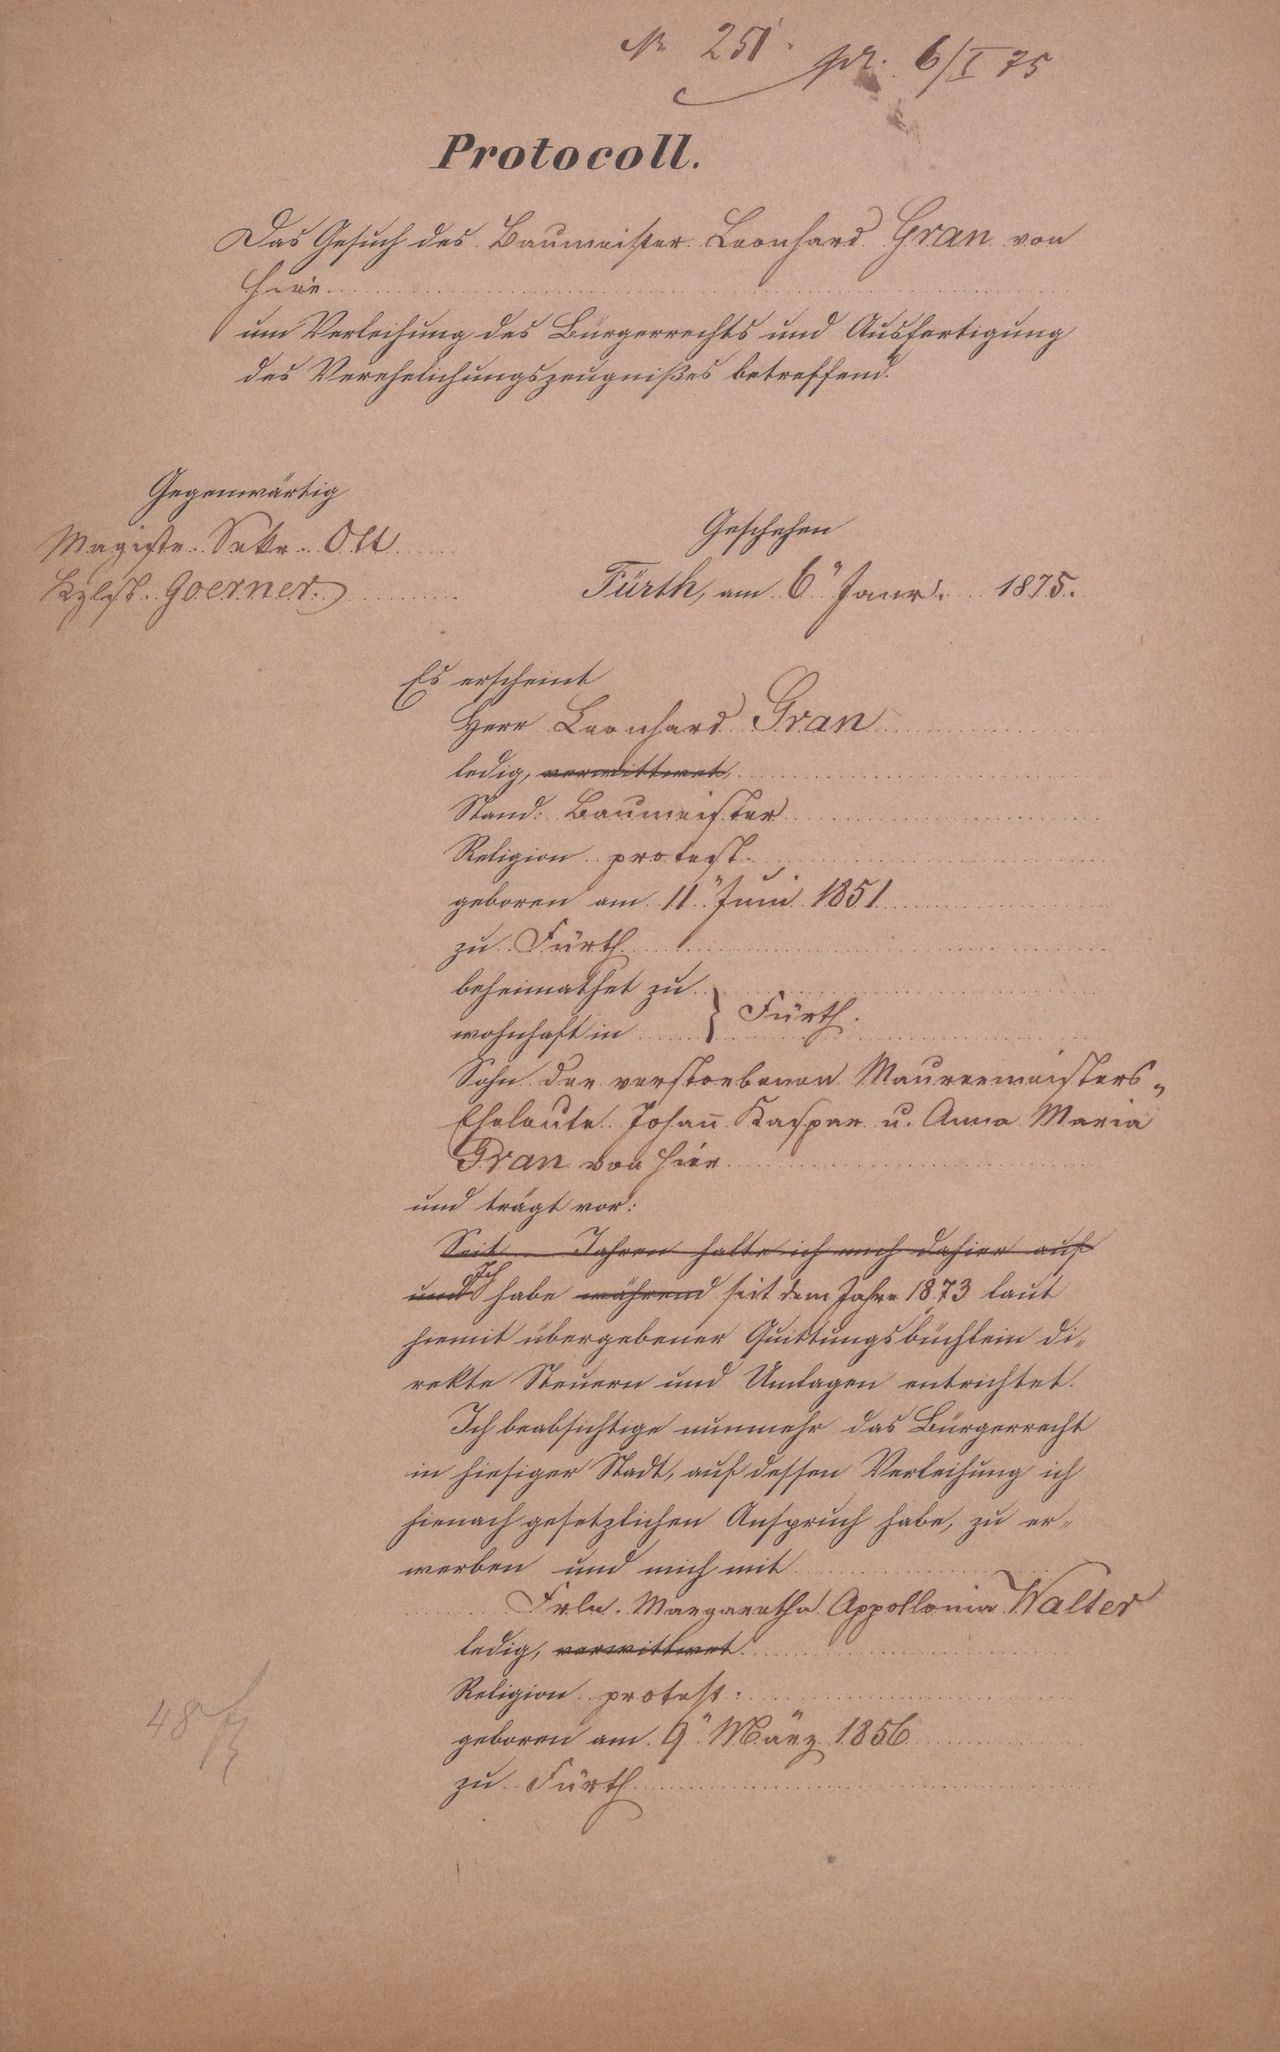 Nr. 251. pr. 6/I 75
Protocoll.
Das Gesuch des Baumeister Leonhard Gran von
hier
um Verleihung des Bürgerrechts und Ausfertigung
des Verehelichungszeugnißes betreffend.
Gegenwärtig
Magistr. Sekr. Ott
Kzlst. Goerner.
Geschehen
Fürth, am 6" Janr. 1875.
Es erscheint
Herr Leonhard Gran
ledig, verwittwet,
Stand: Baumeister
Religion protest.
geboren am 11" Juni 1851
zu Fürth
beheimathet zu
wohnhaft in } Fürth.
Sohn der verstorbenen Maurermeisters-
Eheleute Johañ Kaspar u. Anna Maria
Gran von hier
und trägt vor:
Seit Jahren halte ich mich dahier auf
und Ich habe während seit dem Jahre 1873 laut
hiemit übergebener Quittungsbüchlein di-
rekte Steuern und Umlagen entrichtet.
Ich beabsichtige nunmehr das Bürgerrecht
in hiesiger Stadt, auf dessen Verleihung ich
hienach gesetzlichen Anspruch habe, zu er-
werben und mich mit
Frln. Margaretha Appollonia Walter
ledig, verwittwet
Religion protest.
geboren am 9" März 1856
zu Fürth
48